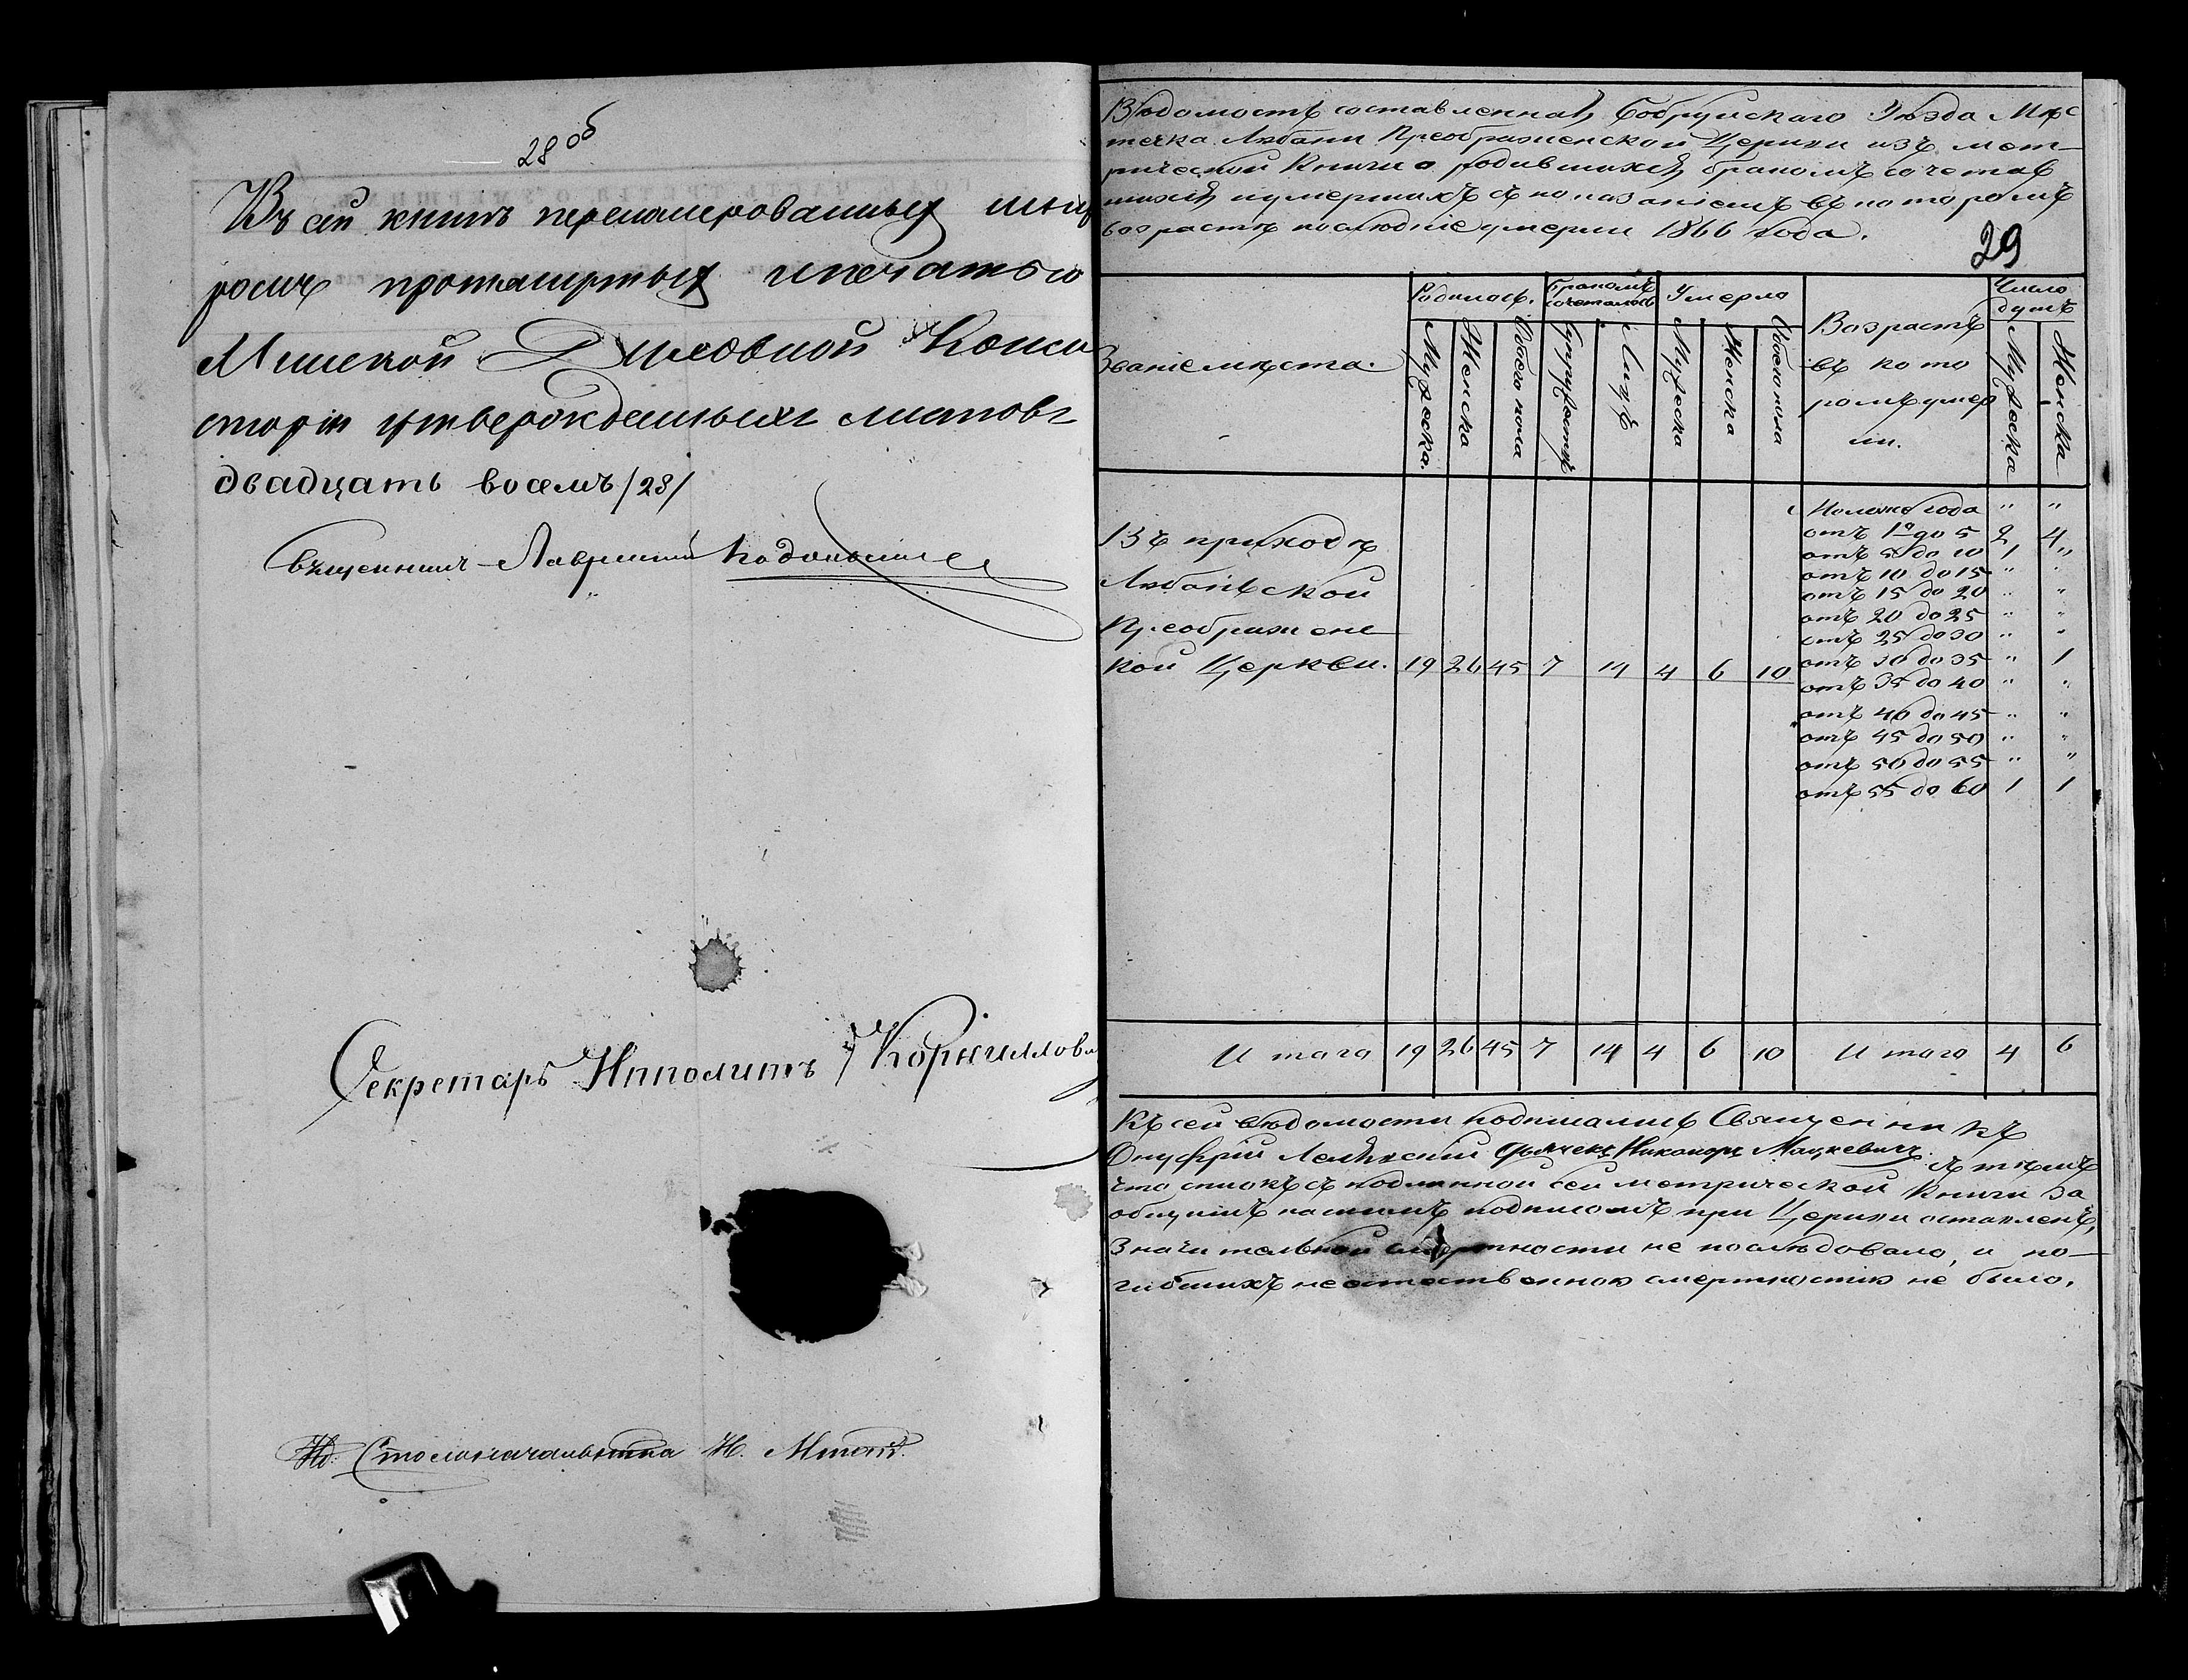 28 об
Въ сей книгѣ перенумерованныхъ шну
ромъ прошнурныхъ и печатью
Минской Духовной Конси
сторіи утвержденныхъ листовъ
двадцать восемь /28/
Священникъ Лаврентій
Секретарь Ипполитъ Корниллови
Столоначальника
Вѣдомость составленная Бобруйскаго Уѣзда Мѣс
течка Любани Преображенской Церкви изъ мет–
рической Книги о родившихся, бракомъ сочетав
шихся и умершихъ съ показаніемъ въ которомъ
возрастѣ послѣдніе умерли 1866 года.
29
Званіе мѣста.
Родилось.
Бракомъ сочеталось
Умерло
Возрастъ
въ кото
ромъ умер
ли.
Число
душъ
Мужеска.
Женска
Обоего пола
Супружествъ
Лицъ
Мужеска
Женска
Обоего пола
Мужеска
Женска
Въ приходѣ
Любаньской
Преображенс
кой Церкви. 19 26 45 7 14 4 6 10
Моложе года " "
отъ 1º до 5 2 4
отъ 5 до 10 1 "
отъ 10 до 15 " "
отъ 15 до 20 " "
отъ 20 до 25 " "
отъ 25 до 30 " "
отъ 30 до 35 " 1
отъ 35 до 40 " "
отъ 40 до 45 " "
отъ 45 до 50 " "
отъ 50 до 55 " "
отъ 55 до 60 1 1
Итого 19 26 45 7 14 4 6 10 Итого 4 6
Къ сей вѣдомости подписались Священникъ
Онуфрій Дьячекъ Никаноръ Мацкевичъ. Съ тѣмъ
что списокъ съ подлинной сей метрической Книги за
общимъ нашимъ подписомъ при Церкви оставленъ,
Значительной смертности не послѣдовало, и по–
гибшихъ неестественною смертностію не было.